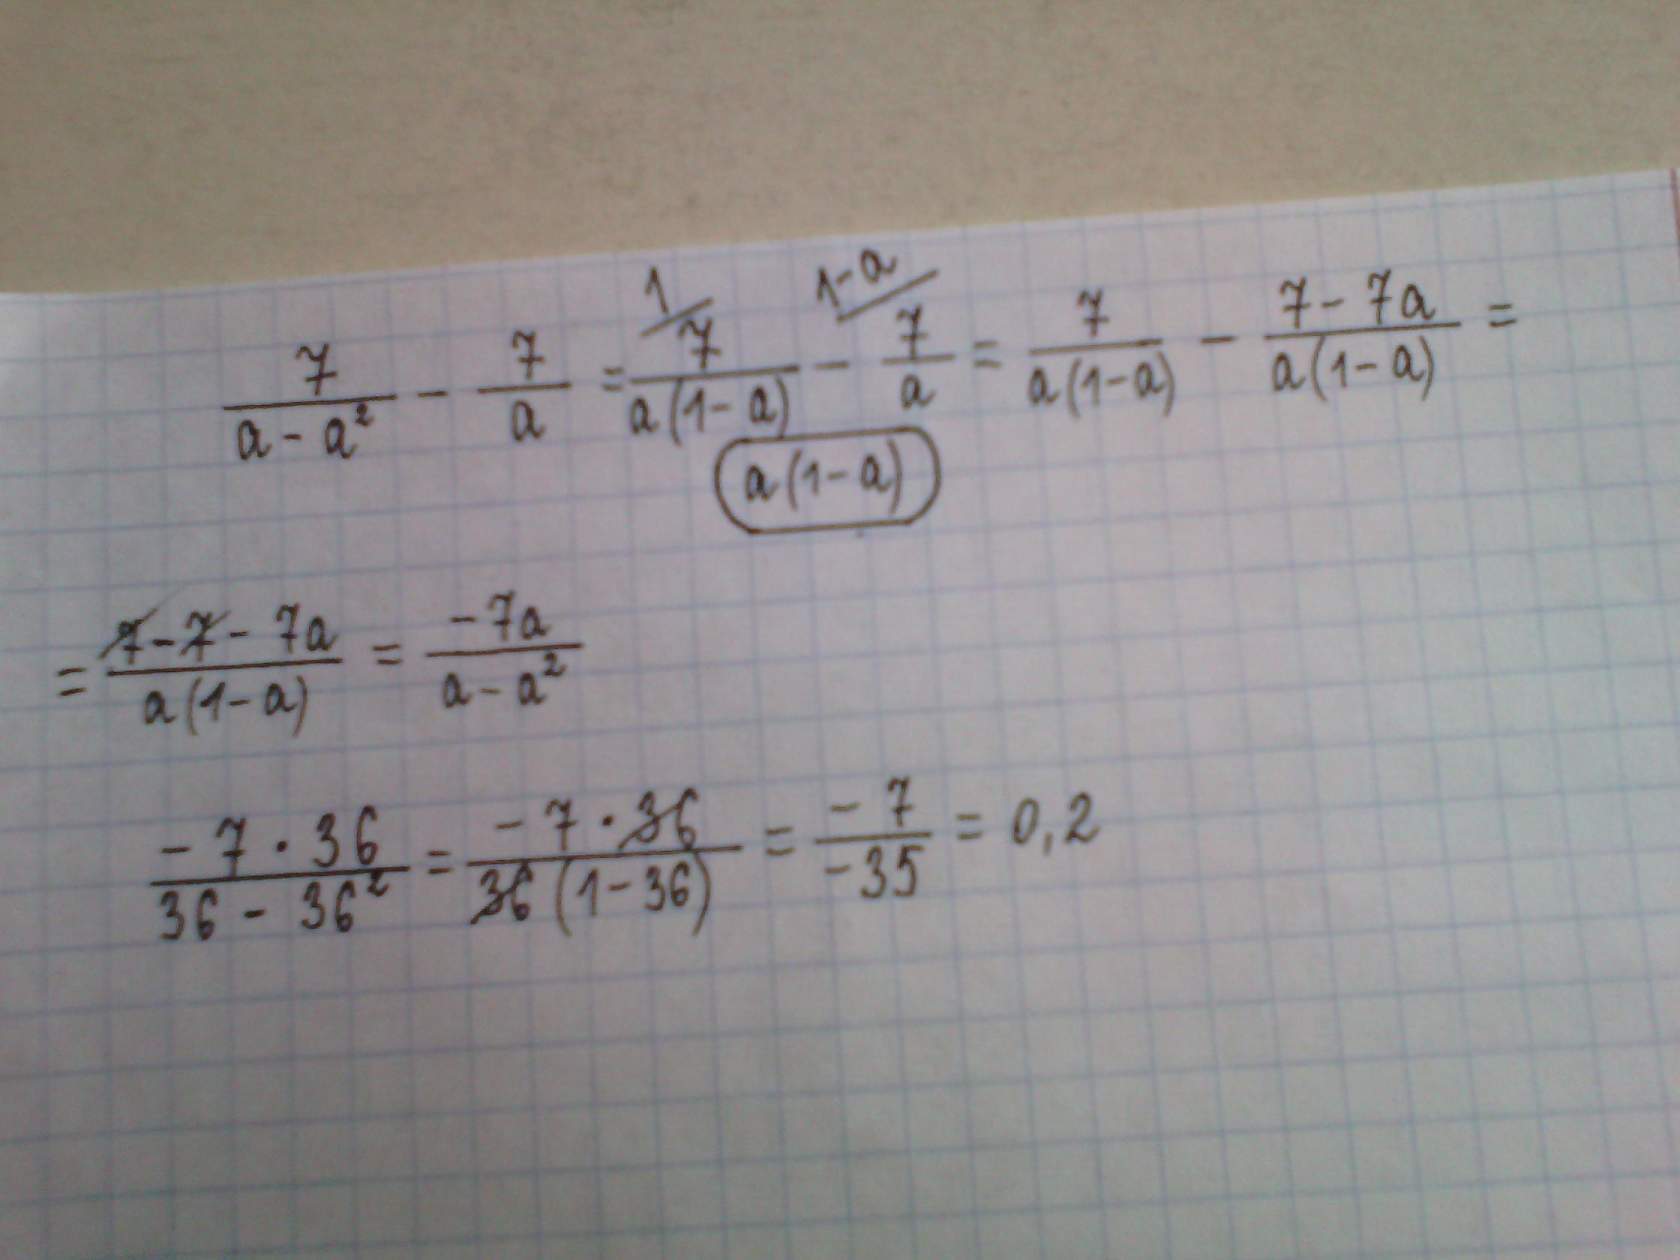 7/(a - a²) - 7/a = 1/ 7/(a(1-a)) - 1-a/ 7/a = 7/(a(1-a)) - (7 - 7a)/(a(1-a)) =
a(1-a)
= (7 - 7 - 7a)/(a(1-a)) = -7a/(a - a²)
(-7 · 36)/(36 - 36²) = (-7 · 36)/(36(1-36)) = -7/-35 = 0,2